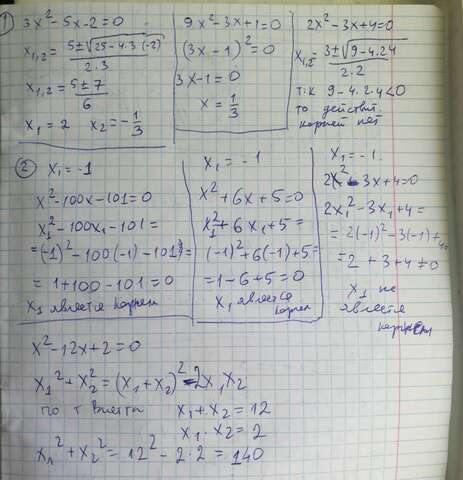 ① 3x²-5x-2=0
x₁,₂ = (5±√(25-4·3·(-2)))/(2·3)
x₁,₂ = (5±7)/6
x₁=2 x₂=-1/3
9x²-3x+1=0
(3x-1)²=0
3x-1=0
x=1/3
2x²-3x+4=0
x₁,₂= (3±√(9-4·24))/(2·2)
т.к 9-4·2·4<0
то действит.
корней нет
② x₁=-1
x²-100x-101=0
x₁²-100x₁-101=
=(-1)²-100(-1)-101=
=1+100-101=0
x₁ является корнем
x₁=-1
x²+6x+5=0
x₁²+6x₁+5=
=(-1)²+6(-1)+5=
=1-6+5=0
x₁ является
корнем
x₁=-1.
2x²-3x+4=0
2x₁²-3x₁+4=
=2(-1)²-3(-1)+4=
=2+3+4≠0
x₁ не
является
корнем
x²-12x+2=0
x₁²+x₂²=(x₁+x₂)²-2x₁x₂
по т Виета x₁+x₂=12
x₁·x₂=2
x₁²+x₂²=12²-2·2=140